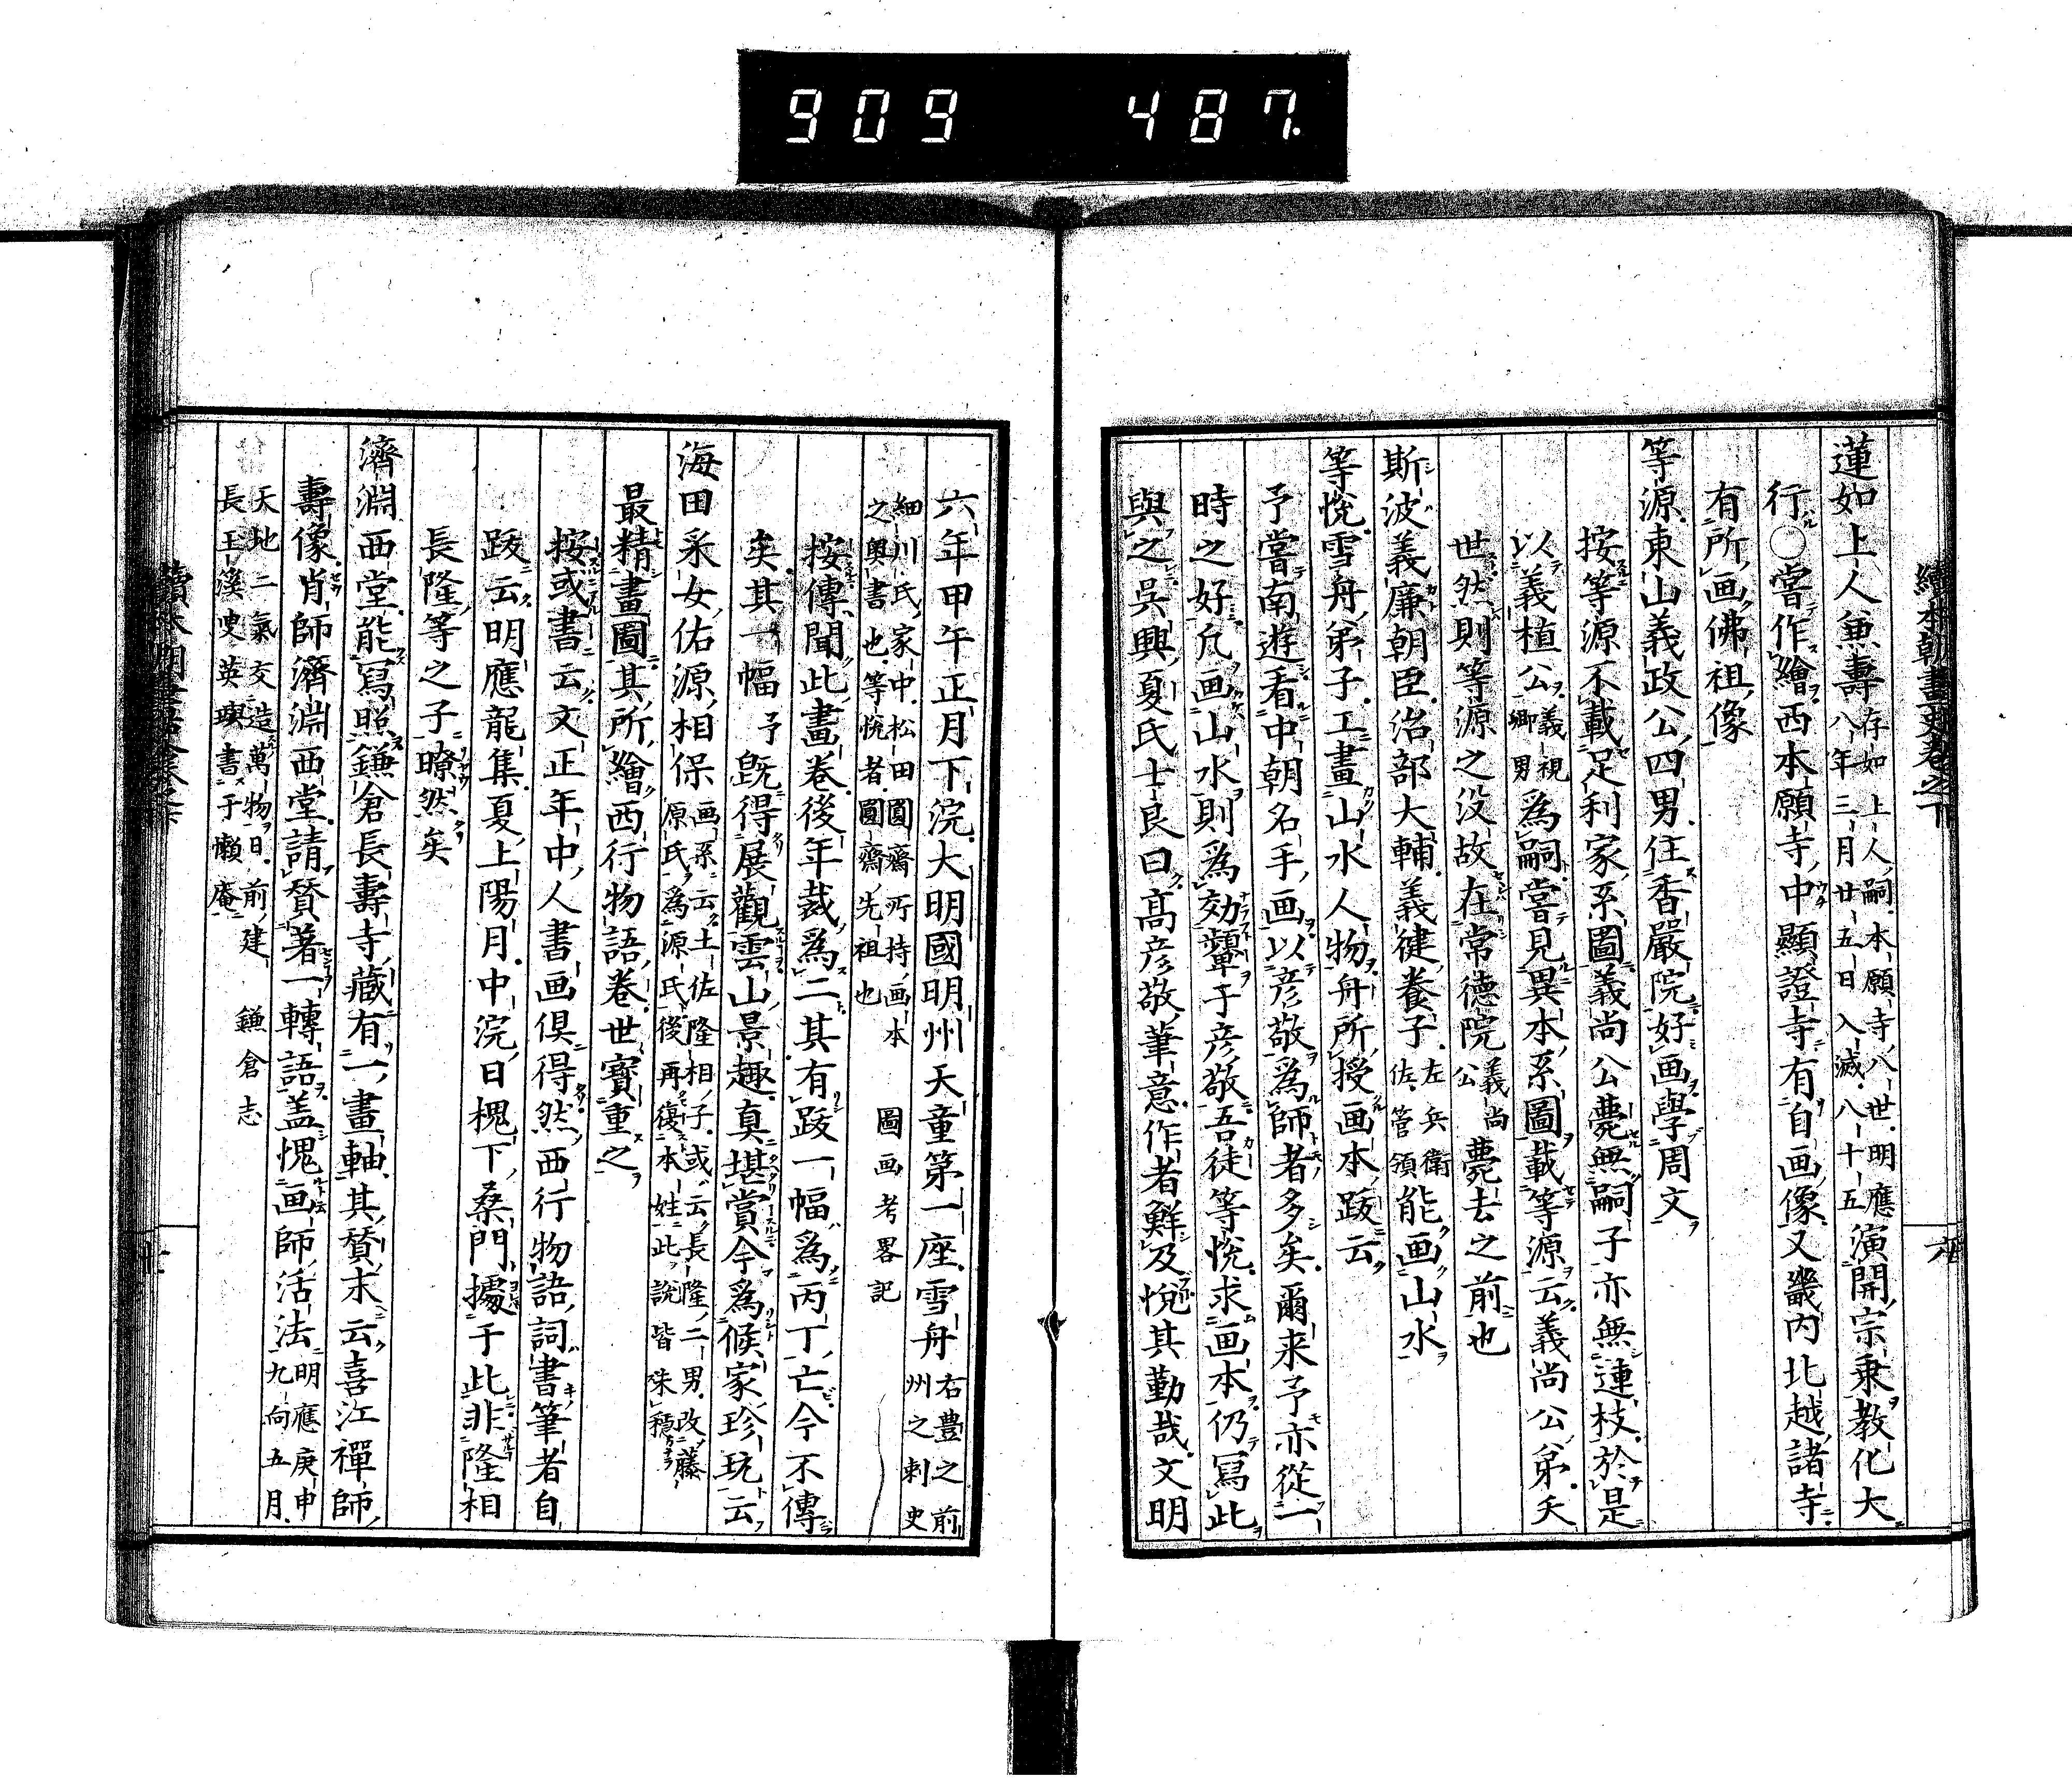 909 487
續本朝畫史卷之下
六
蓮如上人兼壽存如上人嗣本願寺八世明應八年三月廿五日入滅八十五演開宗乗教化大
行○嘗作繪西本願寺中顯證寺有自画像又畿内北越諸寺
有所画佛祖像
等源東山義政公四男住香嚴院好画學周文
按等源不載足利家系圖義尚公薨無嗣子亦無連枝於是
以義植公義視卿男為嗣嘗見異本系圖載等源云義尚公弟夭
世然則等源之没故在常德院義尚公薨去之前也
斯波義廉朝臣治部大輔義健養子左兵衛佐管領能画山水
等悦雪舟弟子工畫山水人物舟所授画本跋云
予嘗南遊看中朝名手画以彦敬為師者多矣爾来予亦從一
時之好凢画山水則為効顰于彦敬吾徒等悦求画本仍冩此
與之呉興夏氏士良曰高彦敬筆意作者鮮及悦其勤哉文明
六年甲午正月下浣大明國明州天童第一座雪舟右豊之前州之刺史
細川氏家中松田圓齋所持画本之奥書也等悦者圓齋先祖也 圖画考畧記
按傳聞此畫卷後年裁為二其有跋一幅為丙丁亡今不傳
矣其一幅予既得展觀雲山景趣真堪賞今為候家珍玩云
海田采女佑源相保画系云土佐隆相子或云長隆二男改藤原氏為源氏後再復本姓此說皆殊穩
最精畫圖其所繪西行物語卷世寳重之
按或書云文正年中人書画倶得然西行物語詞書筆者自
跋云明應龍集夏上陽月中浣日槐下桑門據于此非隆相
長隆等之子瞭然矣
濟淵西堂能冩照鎌倉長壽寺藏有一畫軸其賛末云喜江禪師
壽像肖師濟淵西堂請賛著一轉語盖愧画師活法明應庚申九向五月
天地二氣交造萬物日前建長玉溪叟英璵書于懶庵 鎌倉志